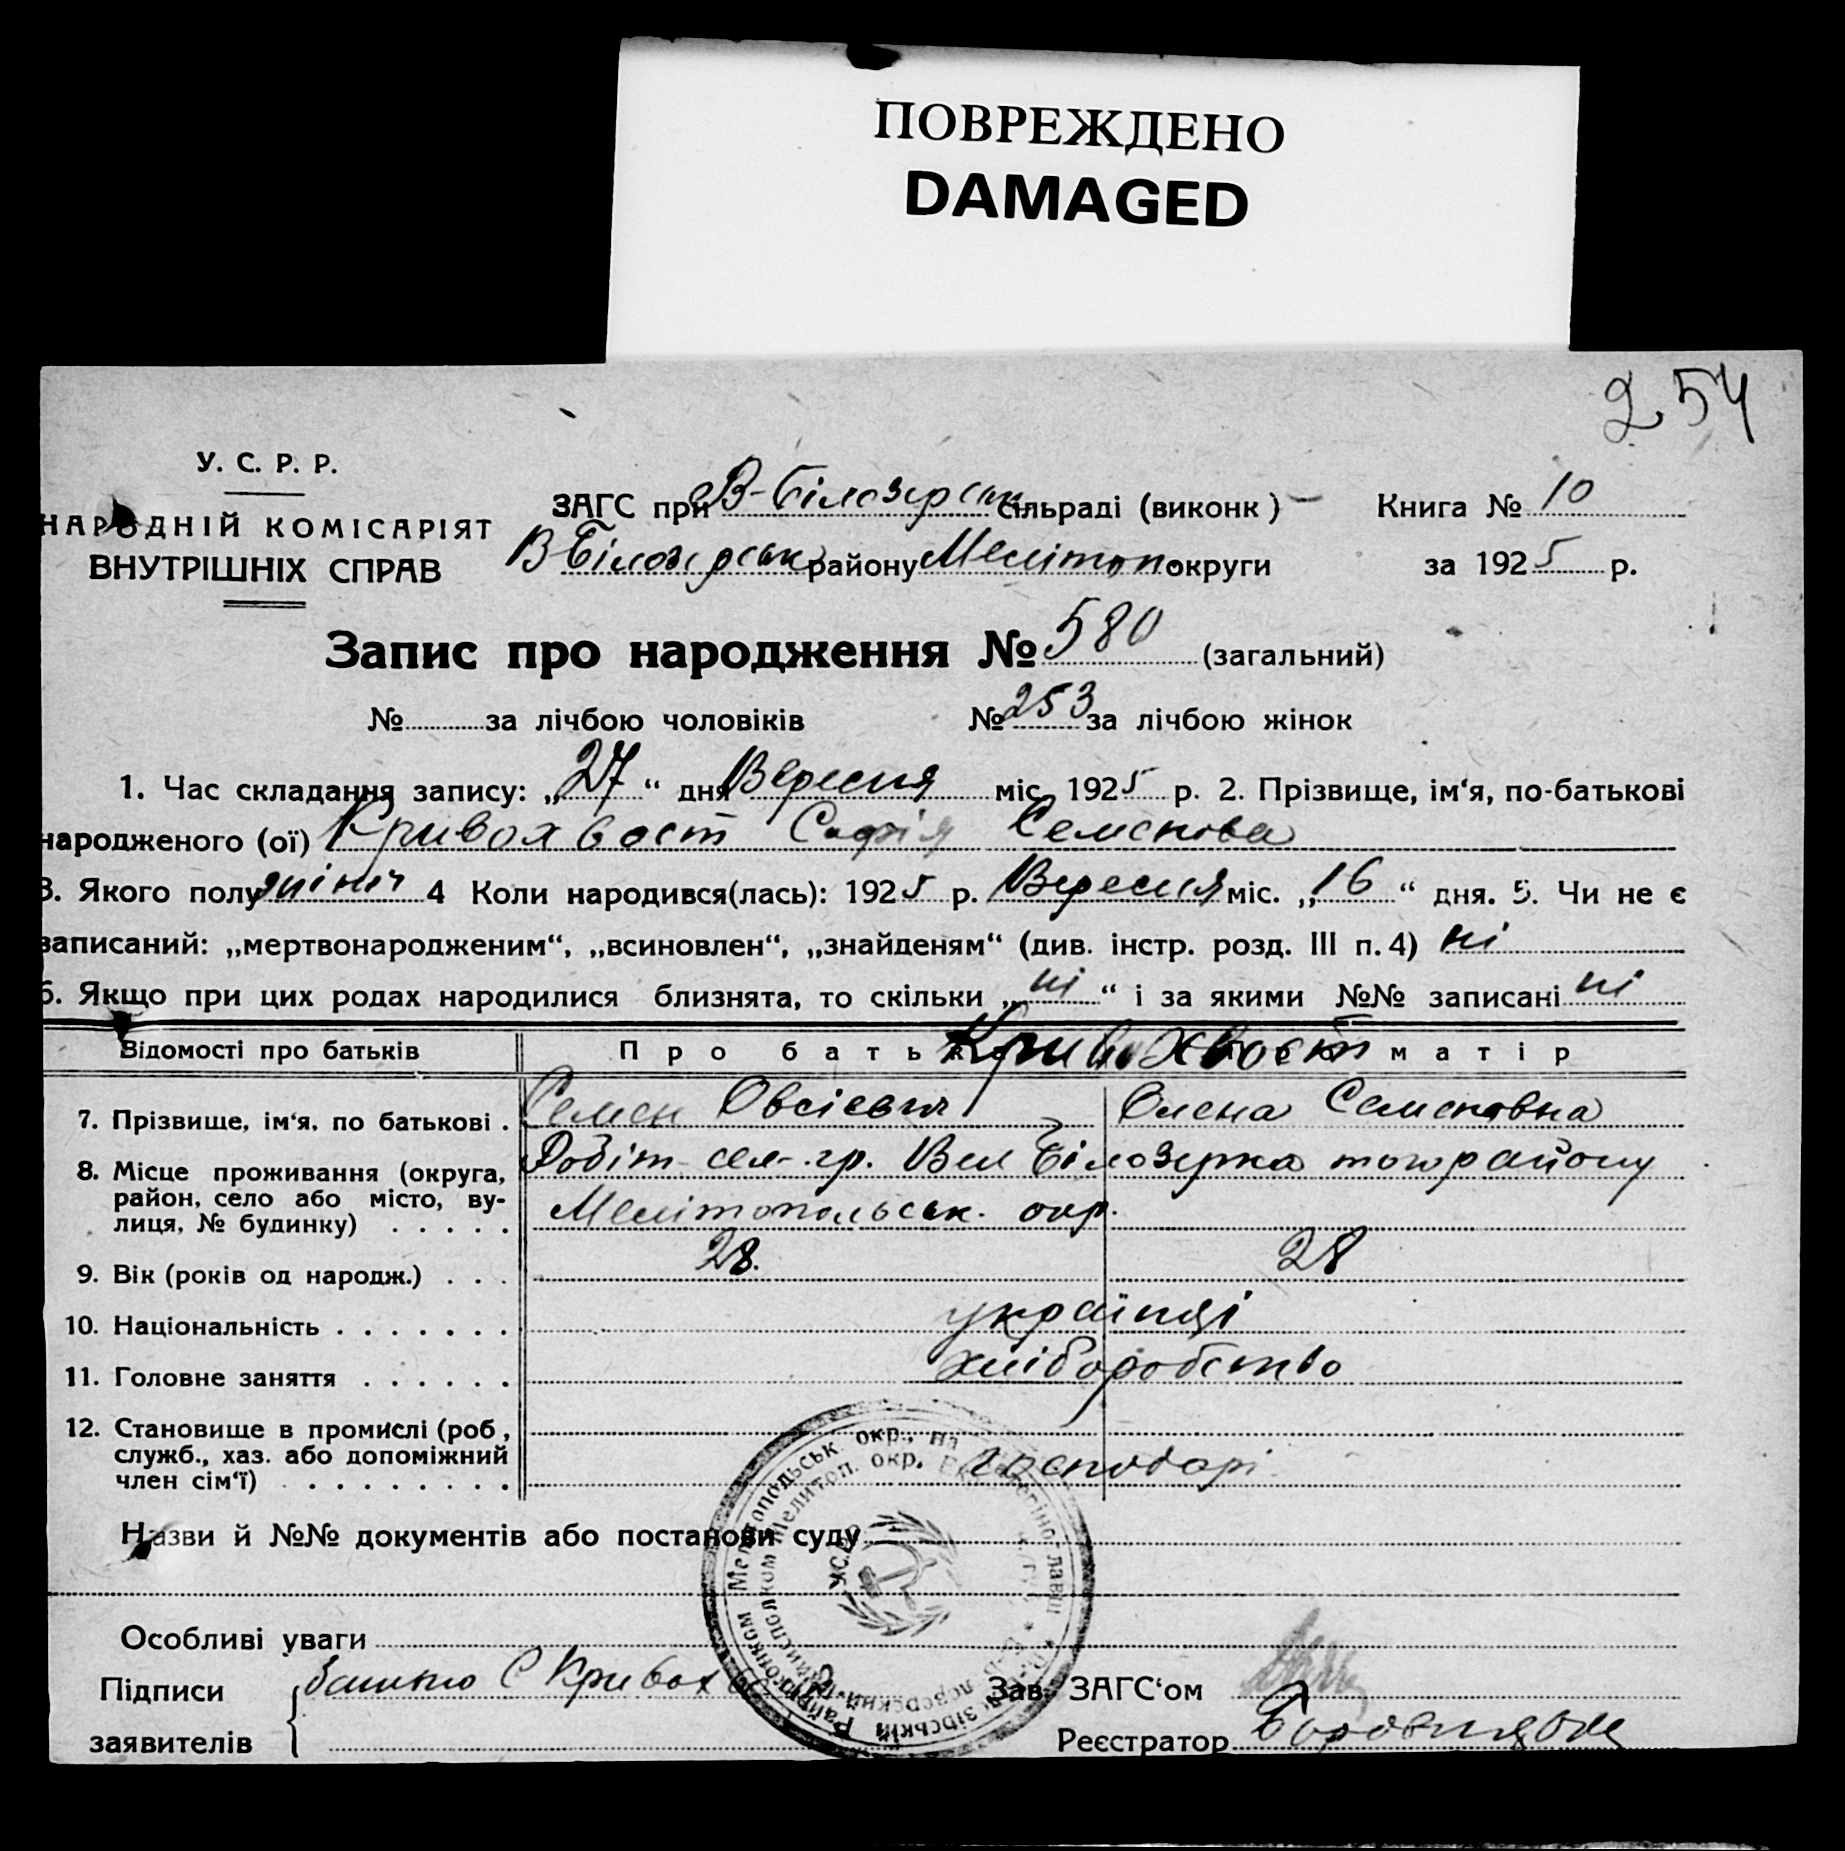 ПОВРЕЖДЕНО
DAMAGED
254
У. С. Р. Р.
НАРОДНІЙ КОМІСАРІЯТ
ВНУТРІШНІХ СПРАВ
ЗАГС при В-Білозерськ сільраді (виконк) Книга № 10
В Білозерськ району Мелітоп. округи за 1925 р.
Запис про народження № 580 (загальний)
№ за лічбою чоловіків № 253 за лічбою жінок
1. Час складання запису: „27“ дня Вересня міс. 1925 р. 2. Прізвище, ім‘я, по-батькові
народженого (ої) Кривохвост Софія Семенова
3. Якого полу жіноч 4 Коли народився(лась): 1925 р. Вересня міс. „16“ дня. 5. Чи не є
записаний: „мертвонародженим“, „всиновлен“, „знайденям“ (див. інстр. розд. III п. 4) ні
6. Якщо при цих родах народилися близнята, то скільки „ні“ і за якими №№ записані ні
Відомості про батьків Про батька Про матір
Кривохвост
7. Прізвище, ім‘я, по батькові . Семен Овсієвич Олена Семеновна
8. Місце проживання (округа, район, село або місто, вулиця, № будинку) . . . . . Робіт. сел-.гр. Вел Білозерка тогорайону
Мелітопольськ. окр.
9. Вік (років од народж.) . . . 28. 28
10. Національність . . . . . . . українці
11. Головне заняття . . . . . . хліборобство
12. Становище в промислі (роб., служб., хаз. або допоміжний член сім‘ї) . . . . . . . . господарі
Назви й №№ документів або постанови суду
Особливі уваги
Підписи батько С Кривохв Зав. ЗАГС‘ом
заявителів Реєстратор